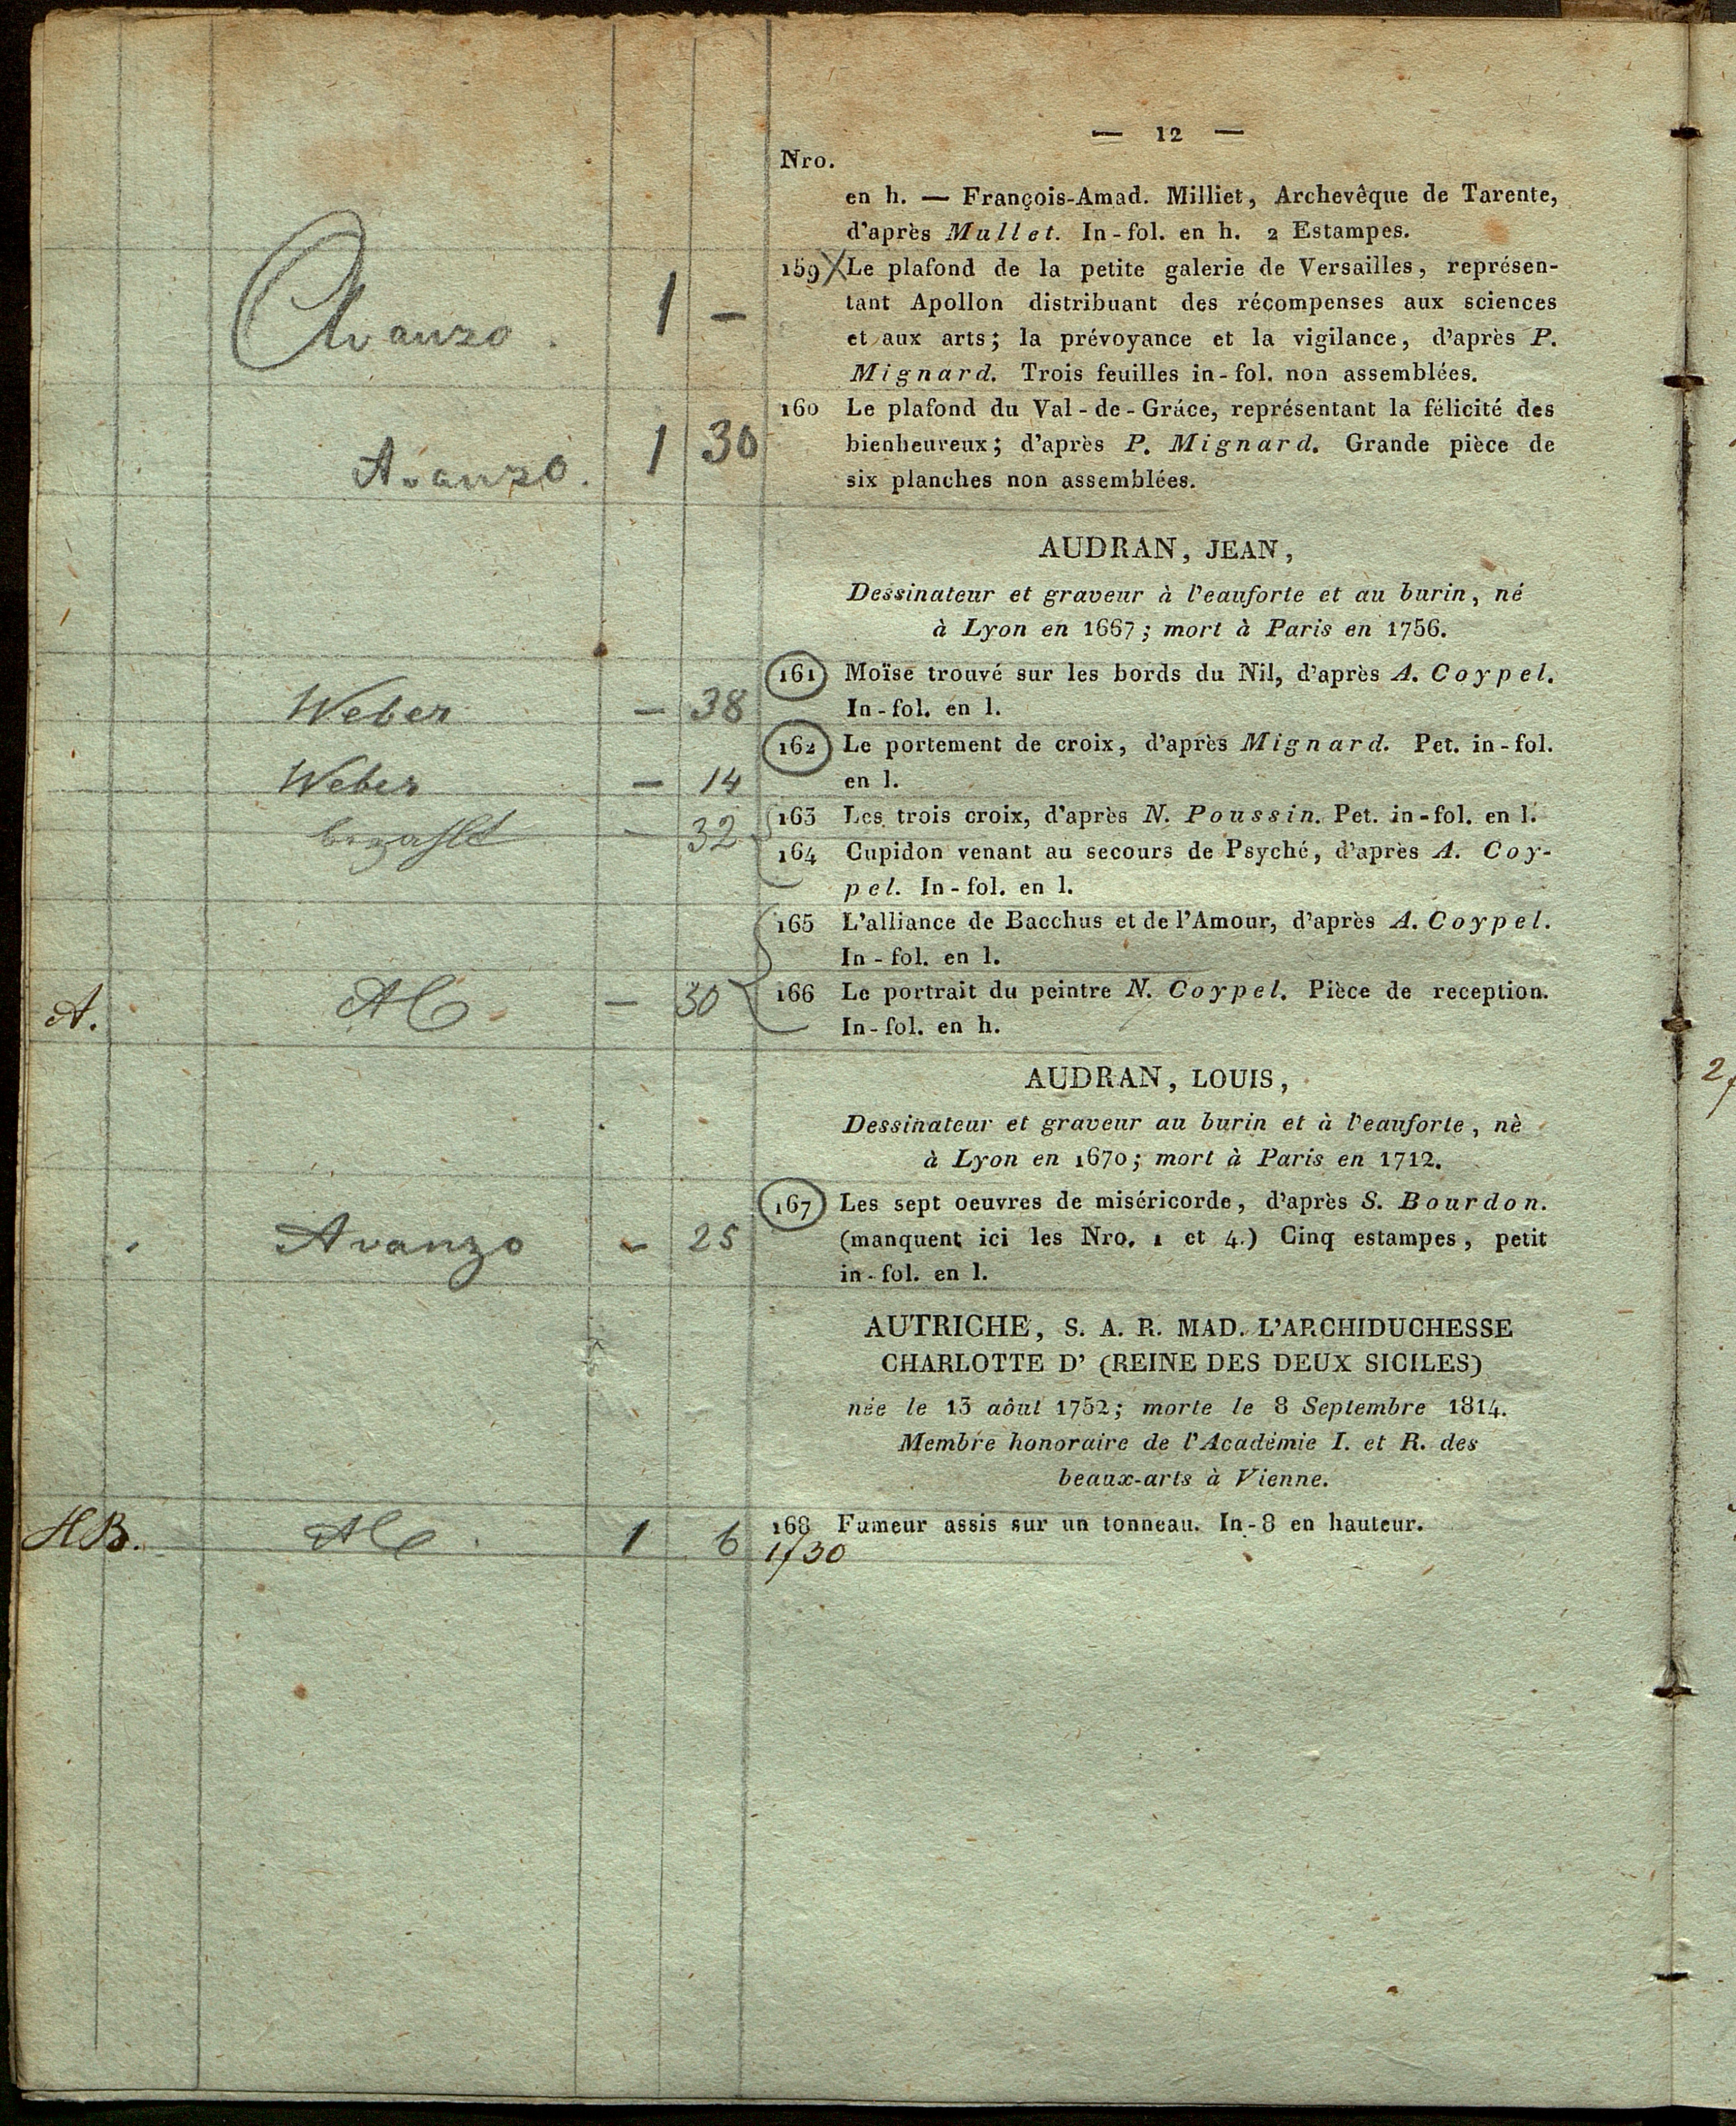 — 12 —
Nro.
en h. — François-Amad. Milliet, Archevêque de Tarente,
d'après Mullet. In-fol. en h. 2 Estampes.
Avanzo. 1 —
159 X Le plafond de la petite galerie de Versailles, représen-
tant Apollon distribuant des récompenses aux sciences
et aux arts; la prévoyance et la vigilance, d'après P.
Mignard. Trois feuilles in-fol. non assemblées.
Avanzo. 1 30
160 Le plafond du Val-de-Gráce, représentant la félicité des
bienheureux; d'après P. Mignard. Grande pièce de
six planches non assemblées.
AUDRAN, JEAN,
Dessinateur et graveur à l'eauforte et au burin, né
à Lyon en 1667; mort à Paris en 1756.
Weber — 38
161 Moïse trouvé sur les bords du Nil, d'après A. Coypel.
In-fol. en l.
Weber — 14
162 Le portement de croix, d'après Mignard. Pet. in-fol.
en l.
bezahlt — 32
163 Les trois croix, d'après N. Poussin. Pet. in-fol. en l.
164 Cupidon venant au secours de Psyché, d'après A. Coy-
pel. In-fol. en l.
165 L'alliance de Bacchus et de l'Amour, d'après A. Coypel.
In-fol. en l.
A. — 30
166 Le portrait du peintre N. Coypel. Pièce de reception.
In-fol. en h.
AUDRAN, LOUIS,
Dessinateur et graveur au burin et à l'eauforte, nè
à Lyon en 1670; mort à Paris en 1712.
Avanzo — 25
167 Les sept oeuvres de miséricorde, d'après S. Bourdon.
(manquent ici les Nro. 1 et 4.) Cinq estampes, petit
in-fol. en l.
AUTRICHE, S. A. R. MAD. L'ARCHIDUCHESSE
CHARLOTTE D' (REINE DES DEUX SICILES)
née le 13 aôut 1752; morte le 8 Septembre 1814.
Membre honoraire de l'Académie I. et R. des
beaux-arts à Vienne.
HB. 1 6
168 Fumeur assis sur un tonneau. In-8 en hauteur.
1/30